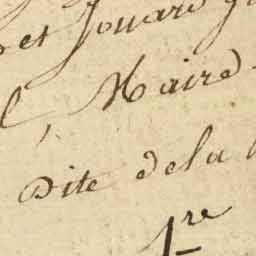 et Jouard
l, Maire
Dite de la
1re